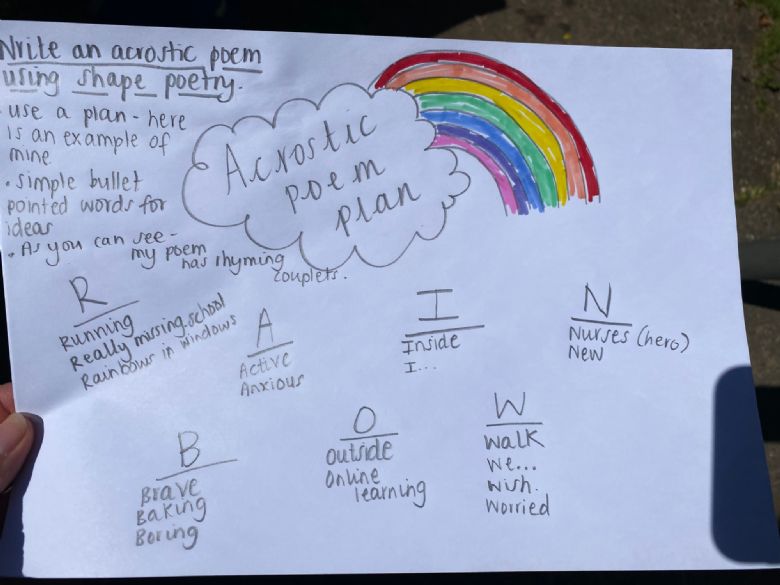 Write an acrostic poem
using shape poetry.
· use a plan - here
is an example of
mine
• simple bullet
pointed words for
ideas
• As you can see -
my poem
has rhyming
couplets.
Acrostic
poem
plan
R
Running
Really missing school
Rainbows in windows
A
Active
Anxious
I
Inside
I...
N
Nurses (hero)
New
B
Brave
Baking
Boring
O
outside
Online
learning
W
Walk
We...
Wish.
Worried